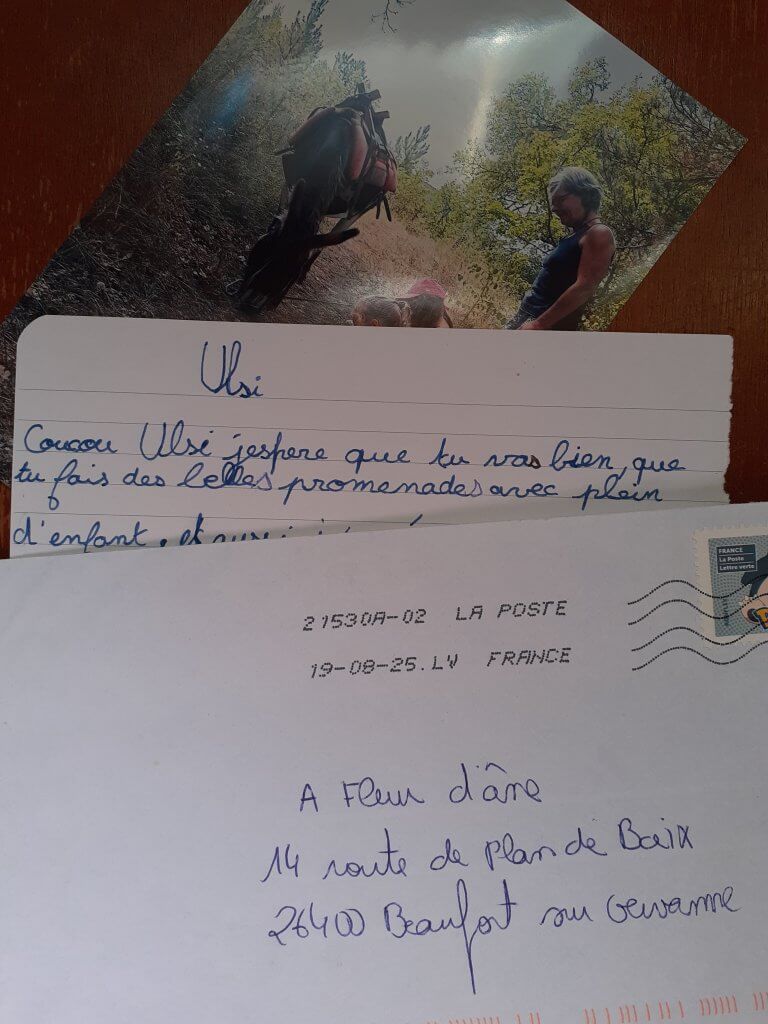 Ulsi
Coucou Ulsi jespere que tu vas bien, que
tu fais des belles promenades avec plein
d'enfant. et
FRANCE
La Poste
Lettre verte
21530A-02 LA POSTE
19-08-25.LV FRANCE
A Fleur d'âne
14 route de Plan de Baix
26400 Beaufort sur Gervanne